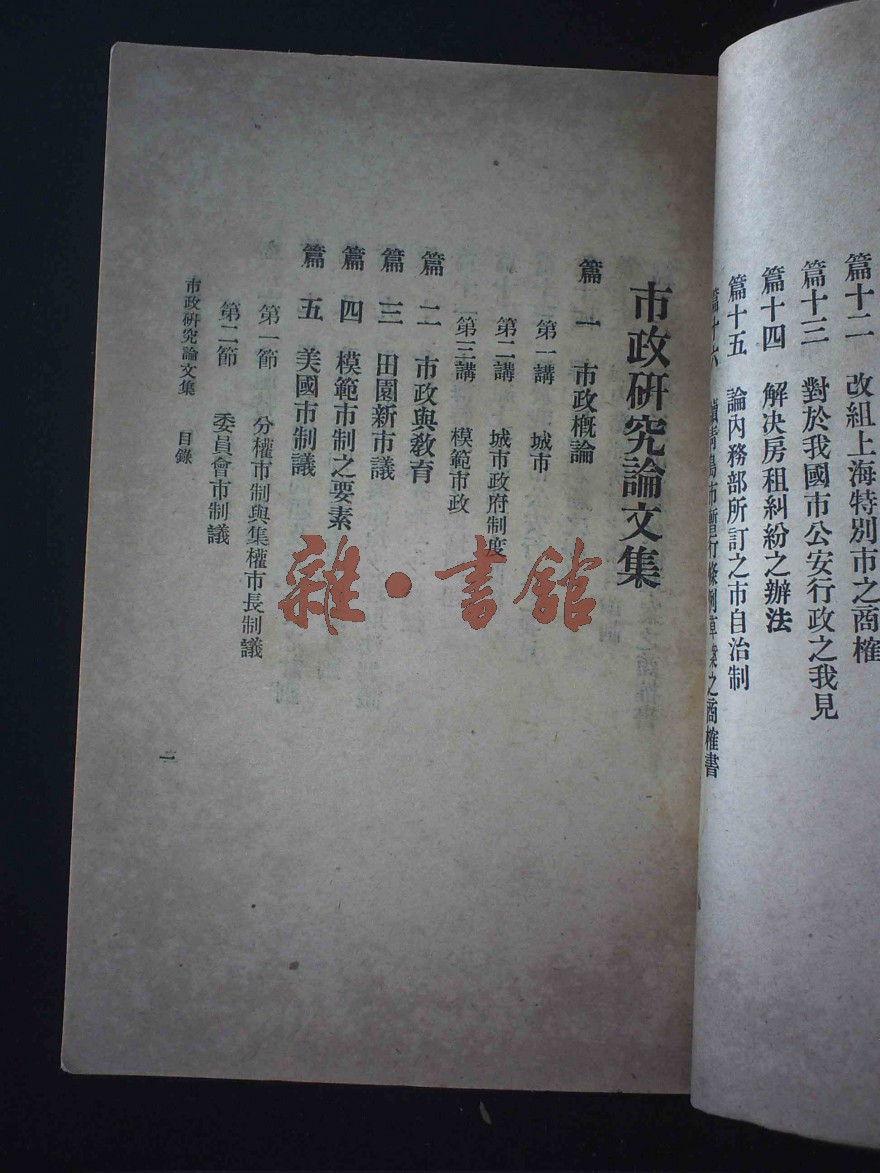 篇十二　改組上海特別市之商榷
篇十三　對於我國市公安行政之我見
篇十四　解決房租糾紛之辦法
篇十五　論內務部所訂之市自治制
篇十六　青島市暫行條例草案之商榷書
市政硏究論文集
篇一　市政概論
第一講　城市
第二講　城市政府制度
第三講　模範市政
篇二　市政與敎育
篇三　田園新市議
篇四　模範市制之要素
篇五　美國市制議
第一節　分權市制與集權市長制議
第二節　委員會市制議
市政硏究論文集　目錄
一
雜·書館